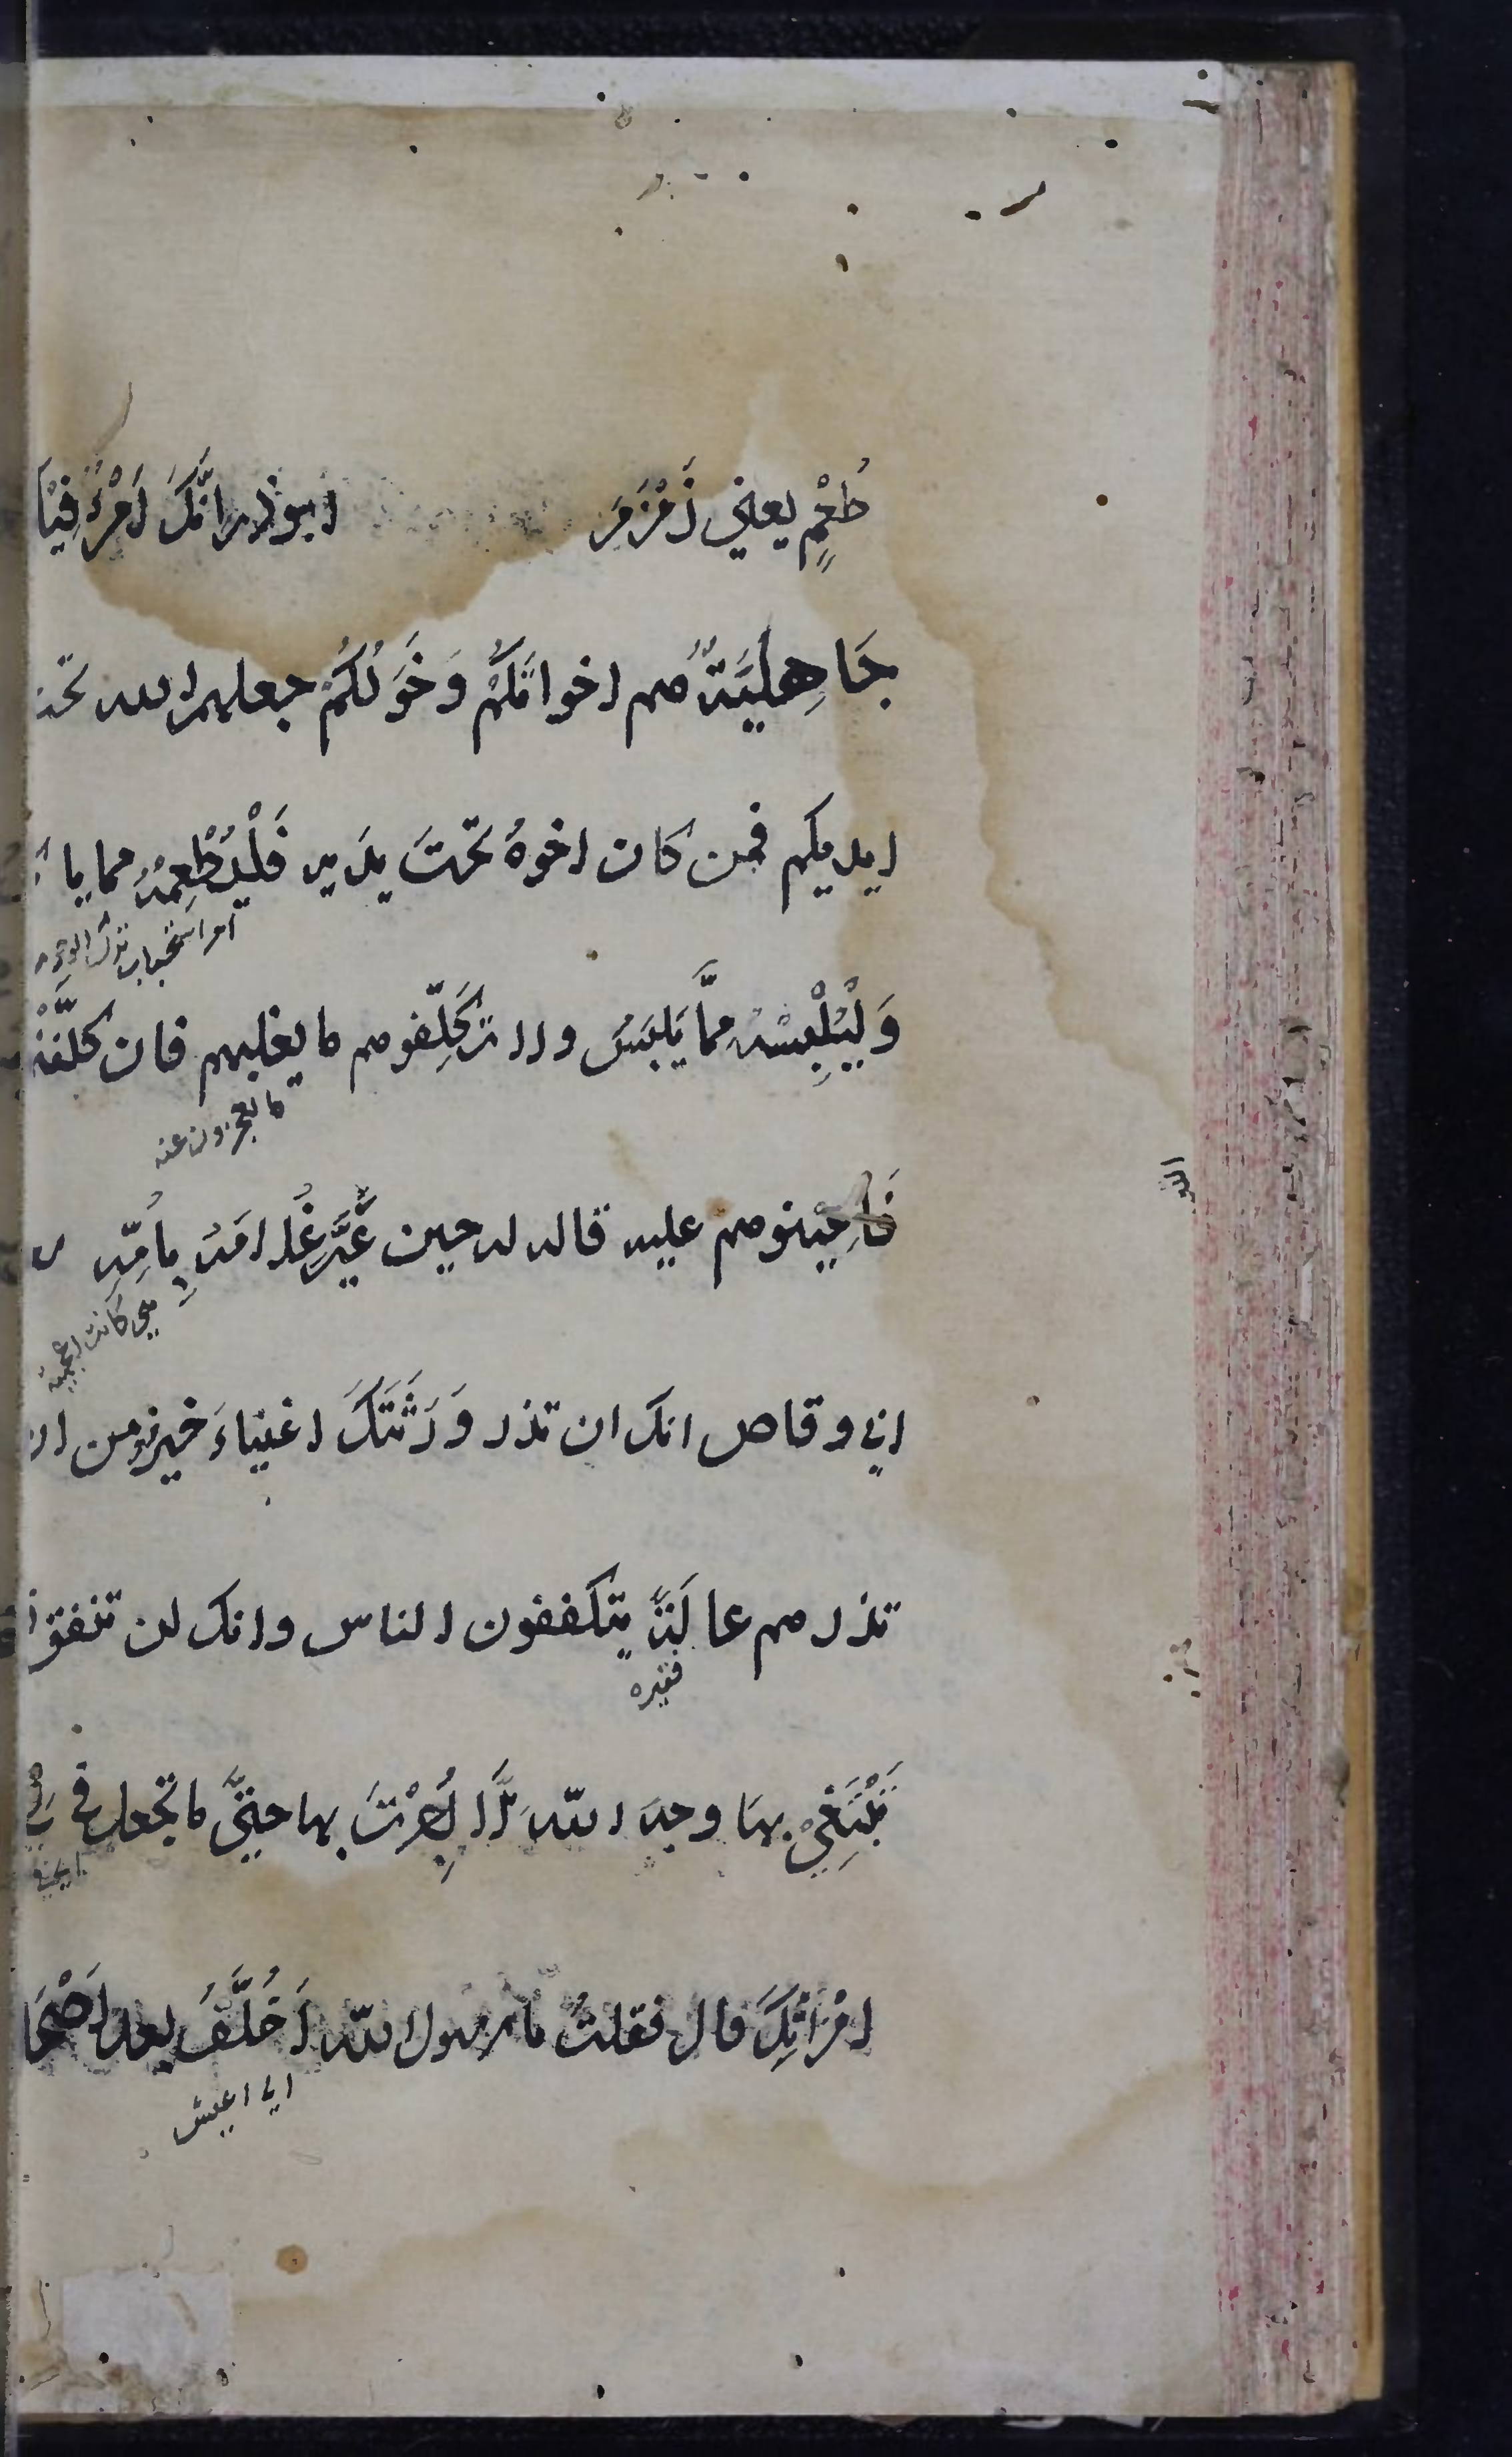 طُعْمٍ يعني زَمْزَمَ ابوذر انَّكَ امْرُءٌ فيْكَ
جَاهِليَّةٌ هم اخوانكُم وَخَوَلُكُمْ جعلهم الله تحت
ايديكم فمن كان اخوهُ تحْتَ يدَيه فَلْيُطْعِمْهُ مما يا
امر استحباب
وَلْيُلْبِسْهُ مِمَّا يَلبَسُ ولا تُكَلِّفوهم ما يغلبهم فان كلَّفْتُ
ما يعجزون عنه
فَاعِيْنوهم عليه قاله له حين عَيَّرَ غُلامَهُ بِاُمِّهِ
هي كانت اعجمية
ابي وقاص انك ان تذر وَرَثَتَكَ اغنياءَ خير من ان
تذرهم عالَةً يتكففون الناس وانك لن تنفق
فقيره
تَبْتَغِيْ بهَا وجهَ اللّه اِلَّا اُجِرْتَ بها حتيَّ ما تجعل في
امْرَاتِكَ قال فقلتُ يا رسول اللّه اُخَلَّفُ بعد اَصْحَا
اي اعيش